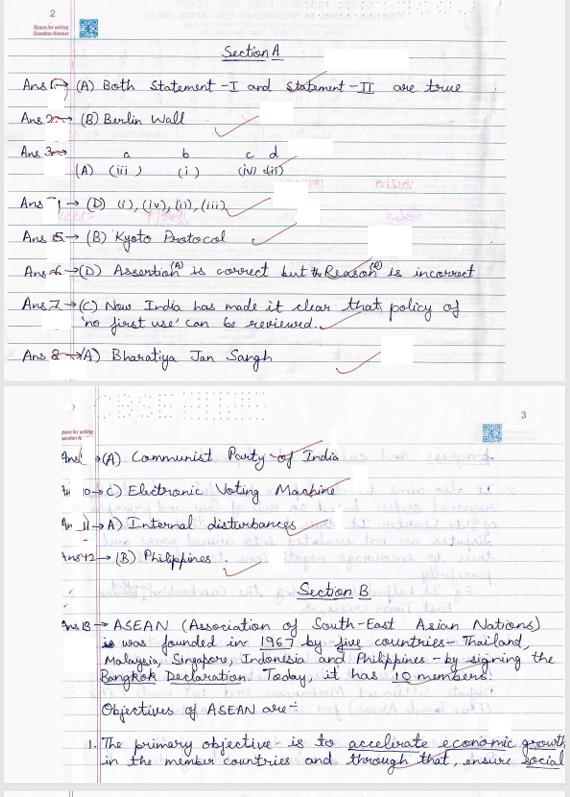 2
Space for writing
Question Number
Section A
Ans 1→ (A) Both Statement-I and Statement-II are true
Ans 2→ (B) Berlin Wall
Ans 3→ a b c d
(A) (iii) (i) (iv) (ii)
Ans → (D) (i), (iv), (ii), (iii)
Ans 5→ (B) Kyoto Protocol
Ans 6→ (D) Assertion (A) is correct but the Reason (R) is incorrect
Ans 7→ (C) Now India has made it clear that policy of
'no first use' can be reviewed.
Ans 8→ (A) Bharatiya Jan Sangh
3
pace for writing
uestion N
Ans → (A) Communist Party of India
10→ C) Electronic Voting Machine
11→ A) Internal disturbances
Ans 12→ (B) Philippines
Section B
Ans 13→ ASEAN (Association of South-East Asian Nations)
was founded in 1967 by five countries- Thailand,
Malaysia, Singapore, Indonesia and Philippines - by signing the
Bangkok Declaration. Today, it has 10 members.
Objectives of ASEAN are:-
1. The primary objective is to accelerate economic growth
in the member countries and through that, ensure social